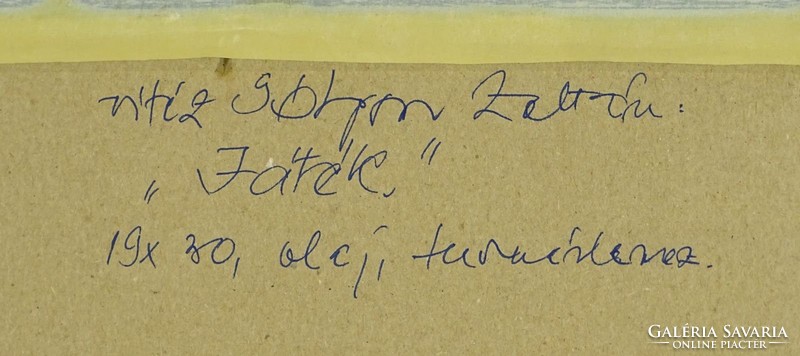 vitéz Sólyom Zoltán:
„Játék.”
19x 30, olaj, furnérlemez.
GALÉRIA SAVARIA
ONLINE PIACTÉR